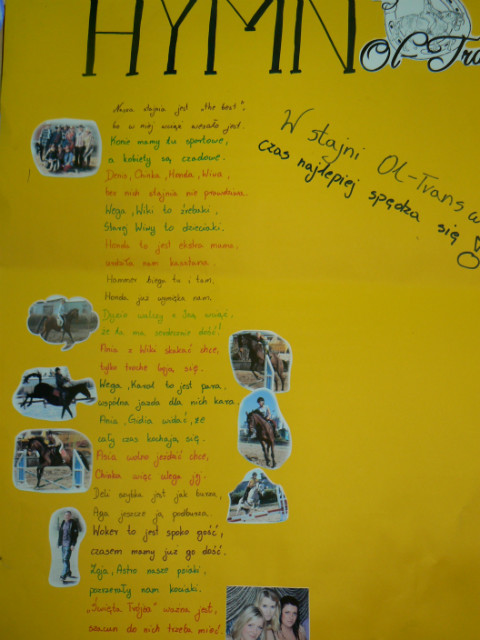 HYMN
Ol-Tra
Nasza stajnia jest „the best",
bo w niej wciąż wesoło jest.
Konie mamy tu sportowe,
a kobiety są czadowe.
Denis, Chinka, Honda, Wiwa,
bez nich stajnia nie prawdziwa.
Wega, Wiki to źrebaki,
Starej Wiwy to dzieciaki.
Honda to jest ekstra mama,
urodziła nam kasztana.
Hammer biega tu i tam,
Honda już wymięka nam.
walczy z Izą wciąż,
że ta ma serdecznie dość!
Ania z Wiki skakać chce,
tylko troche boją się.
Wega, Karol to jest para,
wspólna jazda dla nich kara.
Ania, Gidia widać, że
cały czas kochają się.
Asia wolno jeździć chce,
Chinka więc ulega jej.
Deli szybka jest jak burza,
Aga jeszcze ją podburza.
Woker to jest spoko gość,
czasem mamy już go dość.
Zoja, Astro nasze psiaki,
pożerały nam kociaki.
„Święta Trójca" ważna jest,
szacun do nich trzeba mieć.
W stajni Ol-Trans w
czas najlepiej spędza się